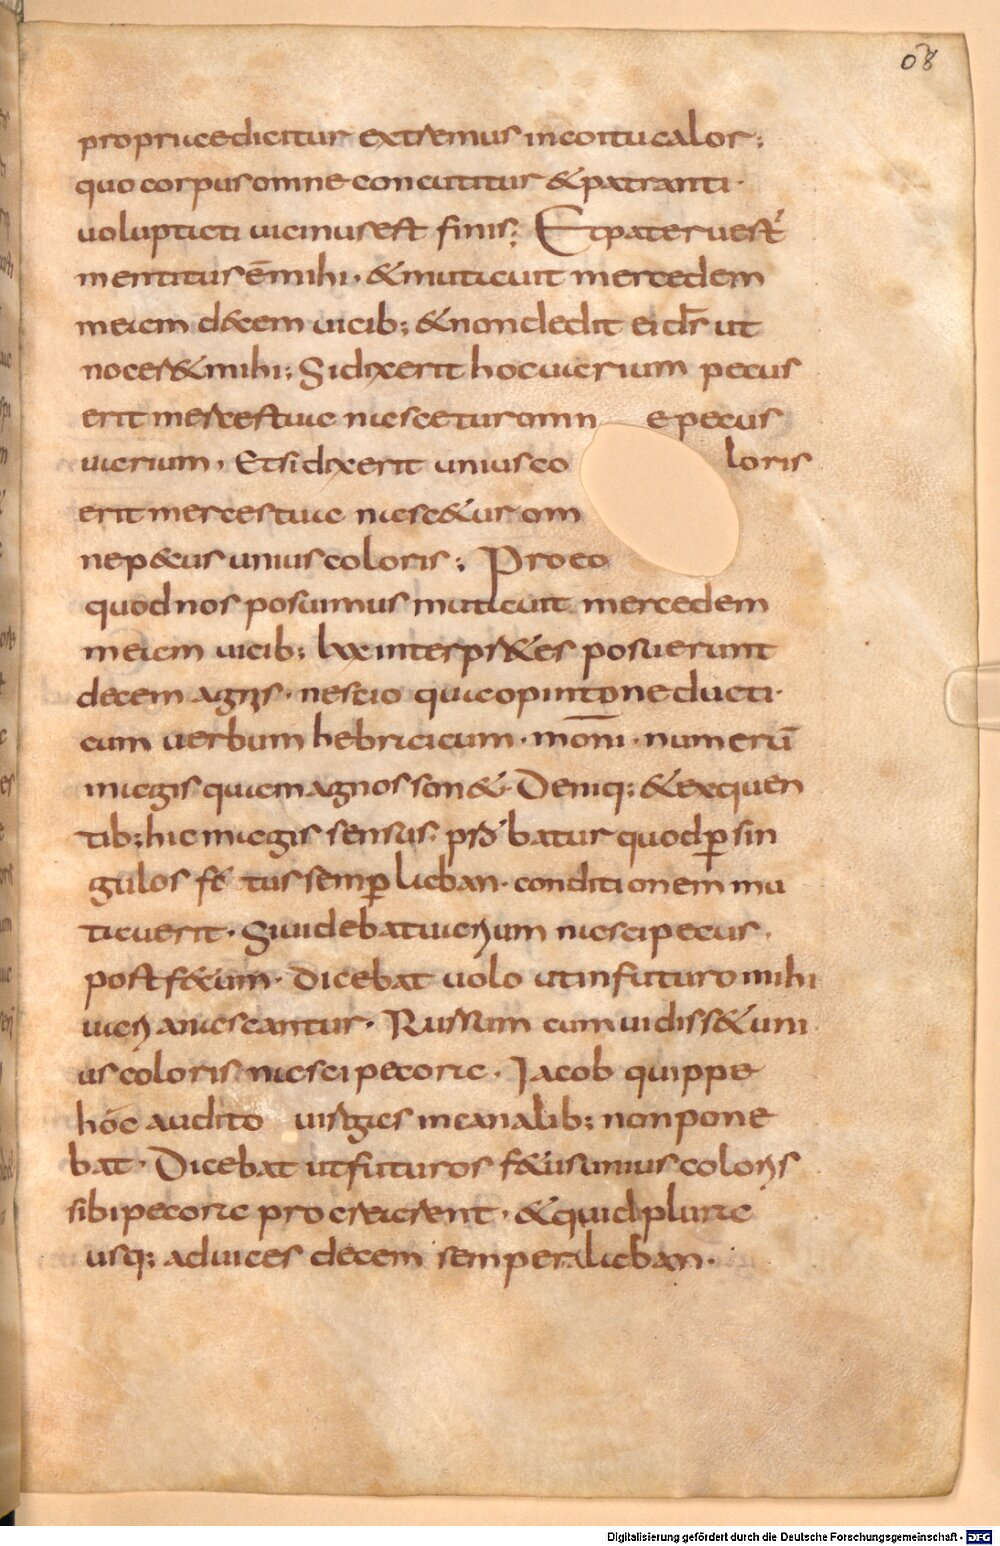 08
proprie dicitur extremus in coitu calor;
quo corpus omne concutitur & patranti·
uoluptati uicinus est finis; Et pater uest̄
mentitus ē mihi· & mutauit mercedem
meam decem uicib; & non dedit ei ds̄ ut
nocer& mihi; Si dixerit hoc uarium pecus
erit merces tua nascetur omn e pecus
uarium· Et si dixerit unius co loris
erit merces tua nasc&ur om
ne p&cus unius coloris; Pro eo
quod nos posuimus mutauit mercedem
meam uicib; lxx interpr&es posuerunt
decem agnis· nescio qua opinione ducti·
cum uerbum hebraicum· moni· numerū
magis quam agnos son&· Deniq; & exsequen
tib; hic magis sensus probatur quod p̄ sin
gulos fę tus semp̄ laban· conditionem mu
tauerit· Si uidebat uarium nasci pecus·
post f&um· dicebat uolo ut in futuro mihi
uaria nascantur· Rursum cum uidiss& uni
us coloris nasci pecora· Jacob quippe
hoc audito uirgas in canalib; non pone
bat· Dicebat ut futuros f&us unius coloris
sibi pecora procrearent· & quid plura
usq; ad uices decem semper a laban·
Digitalisierung gefördert durch die Deutsche Forschungsgemeinschaft - DFG